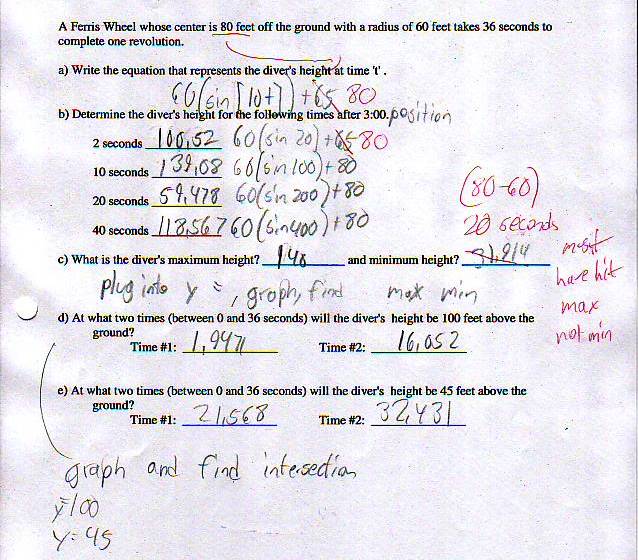 A Ferris Wheel whose center is 80 feet off the ground with a radius of 60 feet takes 36 seconds to
complete one revolution.
a) Write the equation that represents the diver's height at time 't' .
60(sin[10t]) +65 80
b) Determine the diver's height for the following times after 3:00. position
2 seconds 100,52 60(sin 20)+65 80
10 seconds 139,08 60(sin 100)+80
20 seconds 59,478 60(sin 200)+80
40 seconds 118,567 60(sin 400)+80
(80-60)
20 seconds
c) What is the diver's maximum height? 140 and minimum height?
must
have hit
max
not min
plug into y = , graph, find max min
d) At what two times (between 0 and 36 seconds) will the diver's height be 100 feet above the
ground?
Time #1: 1,9471 Time #2: 16,052
e) At what two times (between 0 and 36 seconds) will the diver's height be 45 feet above the
ground?
Time #1: 21,568 Time #2: 32,431
graph and find intersection
y=100
y=45